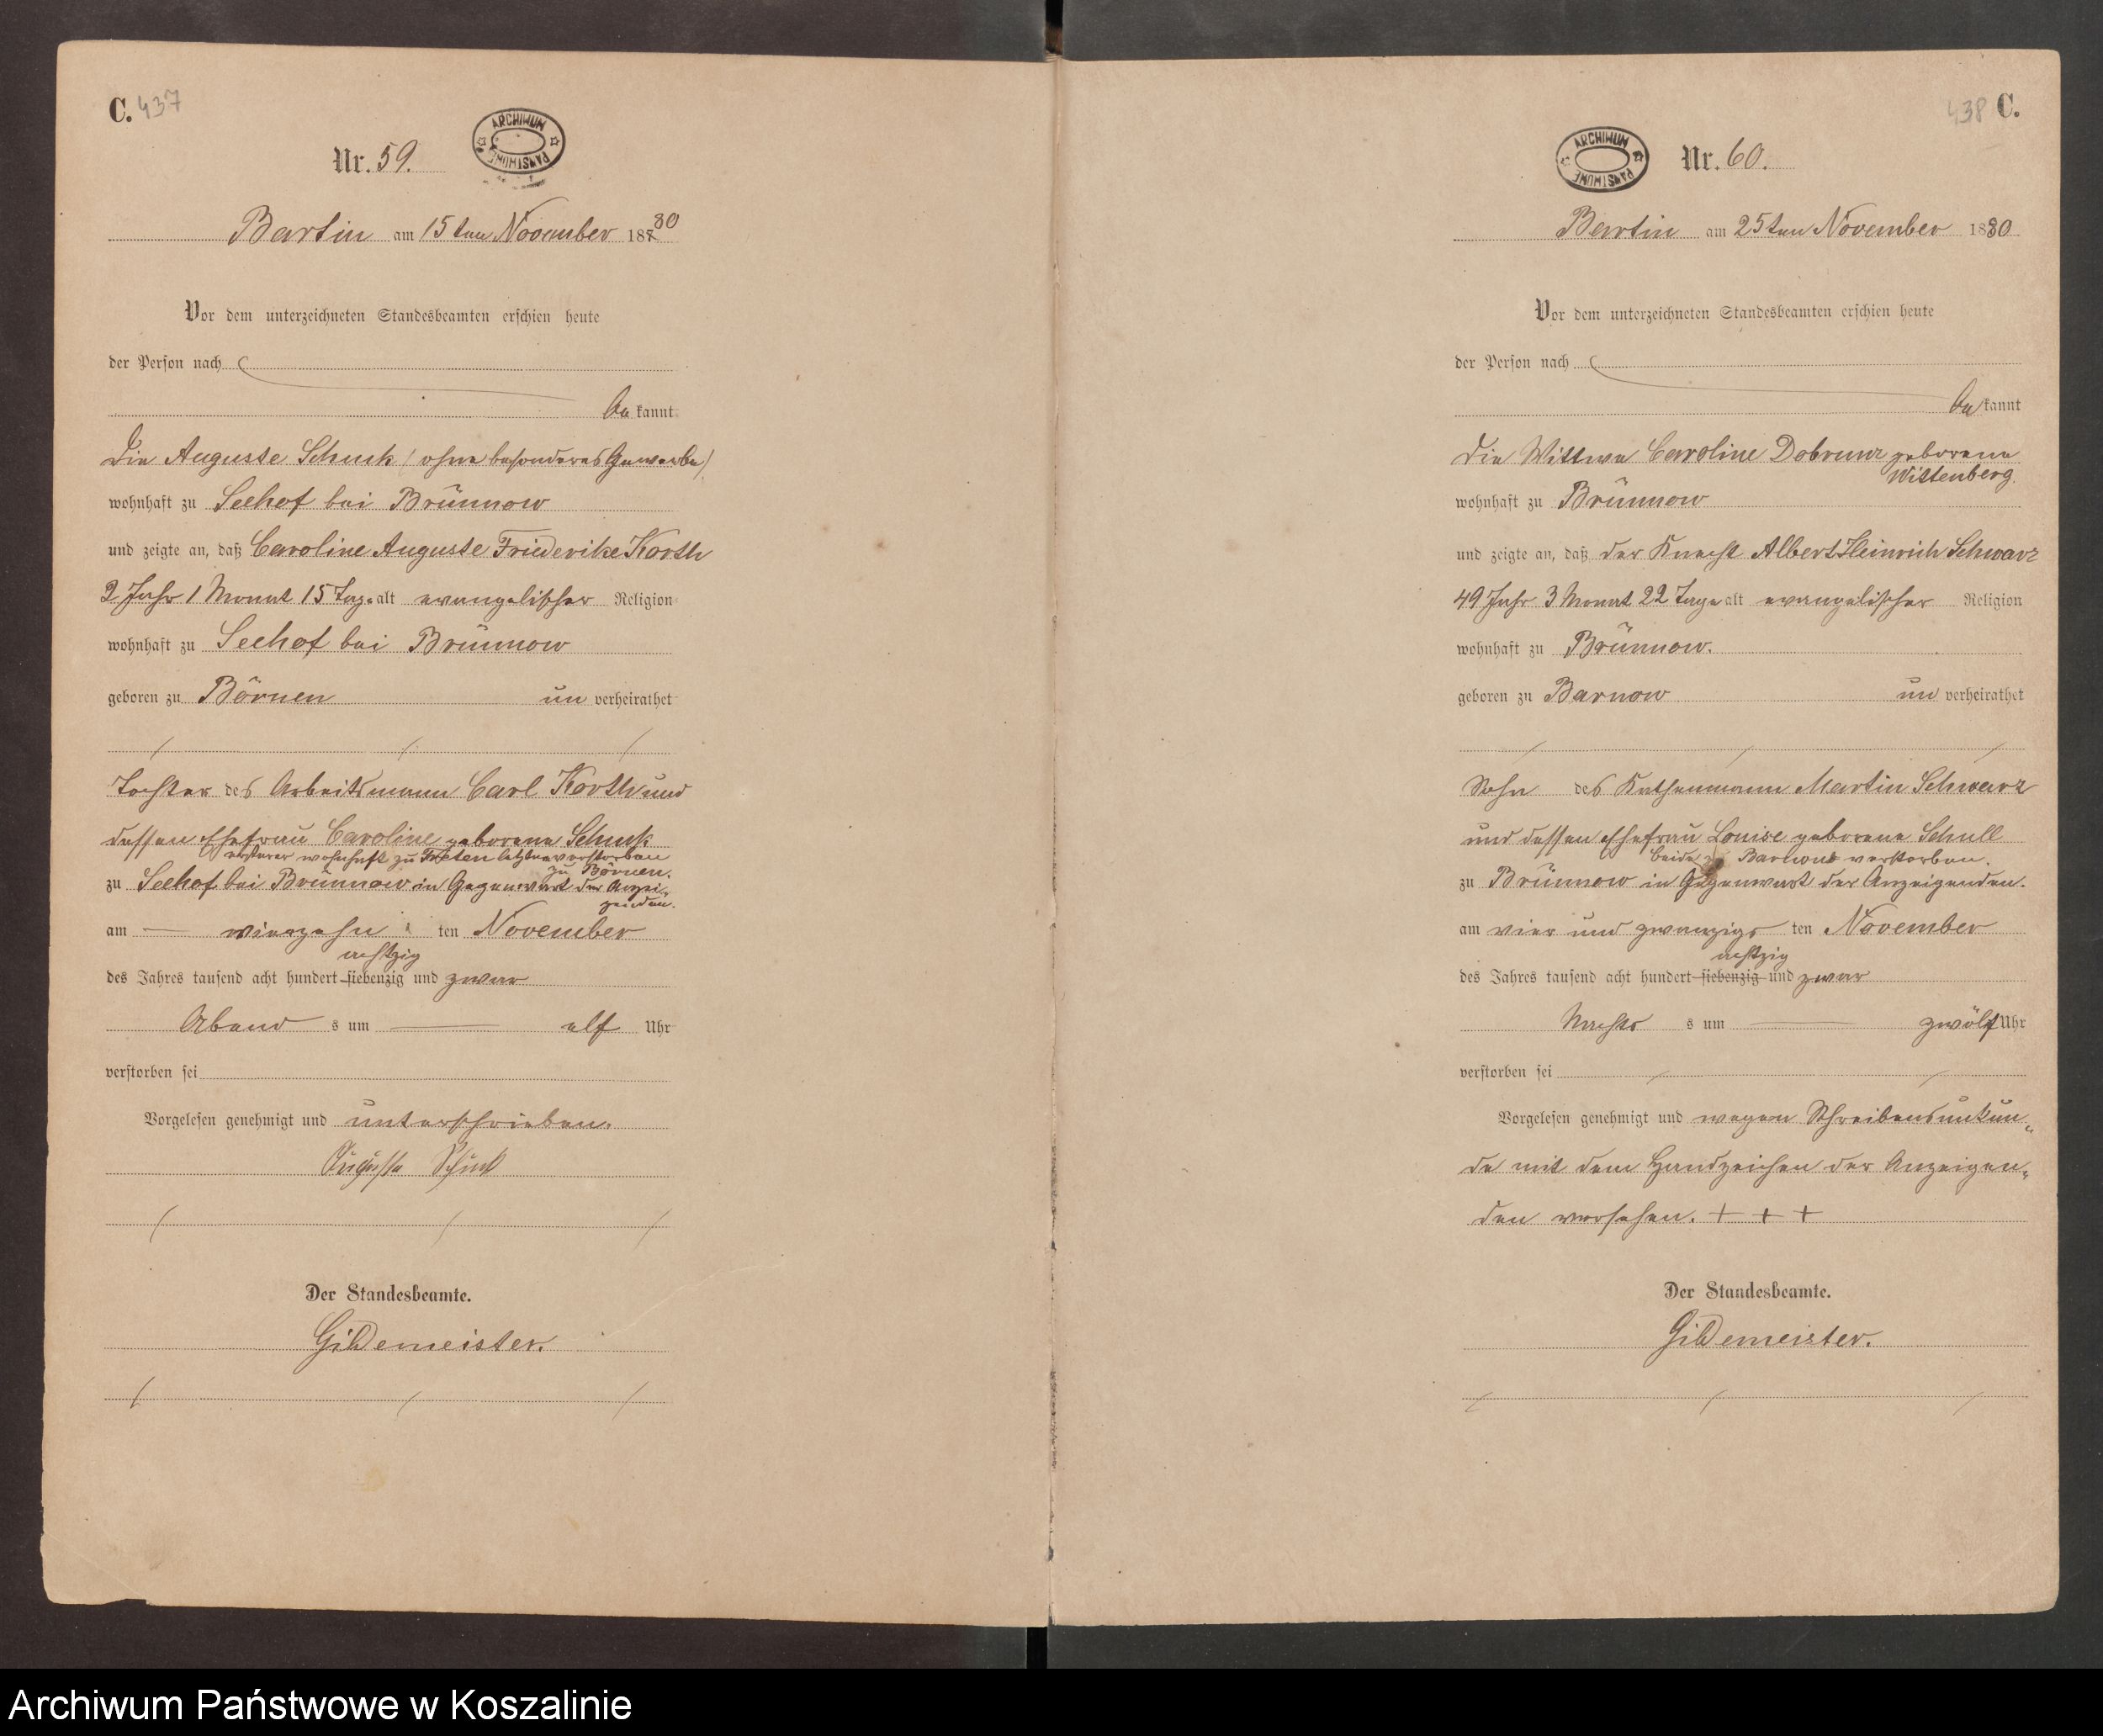 C. 437
ARCHIWUM PAŃSTWOWE
Nr. 59.
Bartin am 15ten November 1880
Vor dem unterzeichneten Standesbeamten erschien heute
der Person nach
be kannt
die Auguste Schuck (ohne besonderes Gewerbe)
wohnhaft zu Seehof bei Brünnow
und zeigte an, daß Caroline Auguste Friederike Korth
2 Jahr 1 Monat 15 Tage alt evangelischer Religion
wohnhaft zu Seehof bei Brünnow
geboren zu Börnen un verheirathet
Tochter des Arbeitsmann Carl Korth und
dessen Ehefrau Caroline geborene Schuck
ersterer wohnhaft zu Treten letztere verstorben
zu Börnen.
zu Seehof bei Brünnow in Gegenwart der Anzei-
genden.
am vierzehn ten November
achtzig
des Jahres tausend acht hundert siebenzig und zwar
Abend s um elf Uhr
verstorben sei
Vorgelesen genehmigt und unterschrieben.
Auguste Schuck
Der Standesbeamte.
Gildemeister.
438 C.
ARCHIWUM PAŃSTWOWE
Nr. 60.
Bartin am 25ten November 1880
Vor dem unterzeichneten Standesbeamten erschien heute
der Person nach
be kannt
die Wittwe Caroline Dobrunz geborene
Wittenberg.
wohnhaft zu Brünnow
und zeigte an, daß der Knecht Albert Heinrich Schwarz
49 Jahr 3 Monat 22 Tage alt evangelischer Religion
wohnhaft zu Brünnow.
geboren zu Barnow un verheirathet
Sohn des Kathenmann Martin Schwarz
und dessen Ehefrau Louise geborene Schull
beide zu Barnow verstorben.
zu Brünnow in Gegenwart der Anzeigenden.
am vier und zwanzigs ten November
achtzig
des Jahres tausend acht hundert siebenzig und zwar
Nachts s um zwölf Uhr
verstorben sei
Vorgelesen genehmigt und wegen Schreibensunkun„
de mit dem Handzeichen der Anzeigen„
den versehen. + + +
Der Standesbeamte.
Gildemeister.
Archiwum Państwowe w Koszalinie